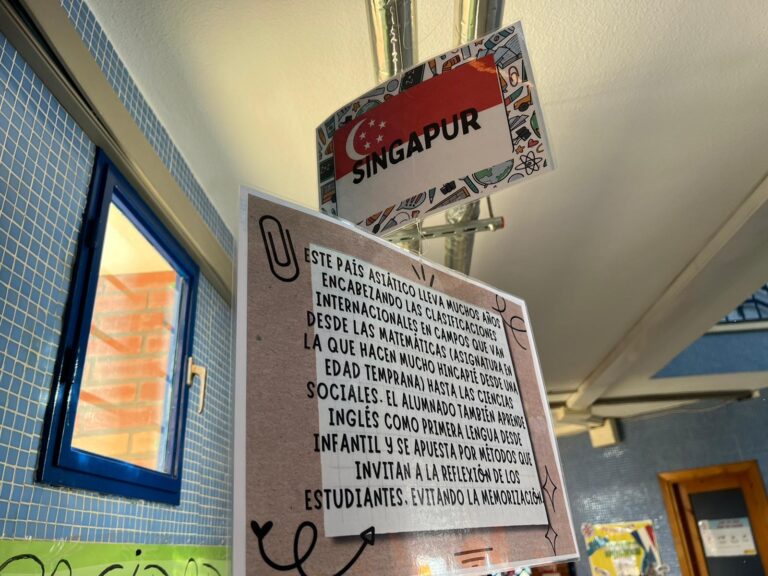 SINGAPUR
ESTE PAÍS ASIÁTICO LLEVA MUCHOS AÑOS
ENCABEZANDO LAS CLASIFICACIONES
INTERNACIONALES EN CAMPOS QUE VAN
DESDE LAS MATEMÁTICAS (ASIGNATURA EN
LA QUE HACEN MUCHO HINCAPIÉ DESDE UNA
EDAD TEMPRANA) HASTA LAS CIENCIAS
SOCIALES. EL ALUMNADO TAMBIÉN APRENDE
INGLÉS COMO PRIMERA LENGUA DESDE
INFANTIL Y SE APUESTA POR MÉTODOS QUE
INVITAN A LA REFLEXIÓN DE LOS
ESTUDIANTES, EVITANDO LA MEMORIZACIÓN.